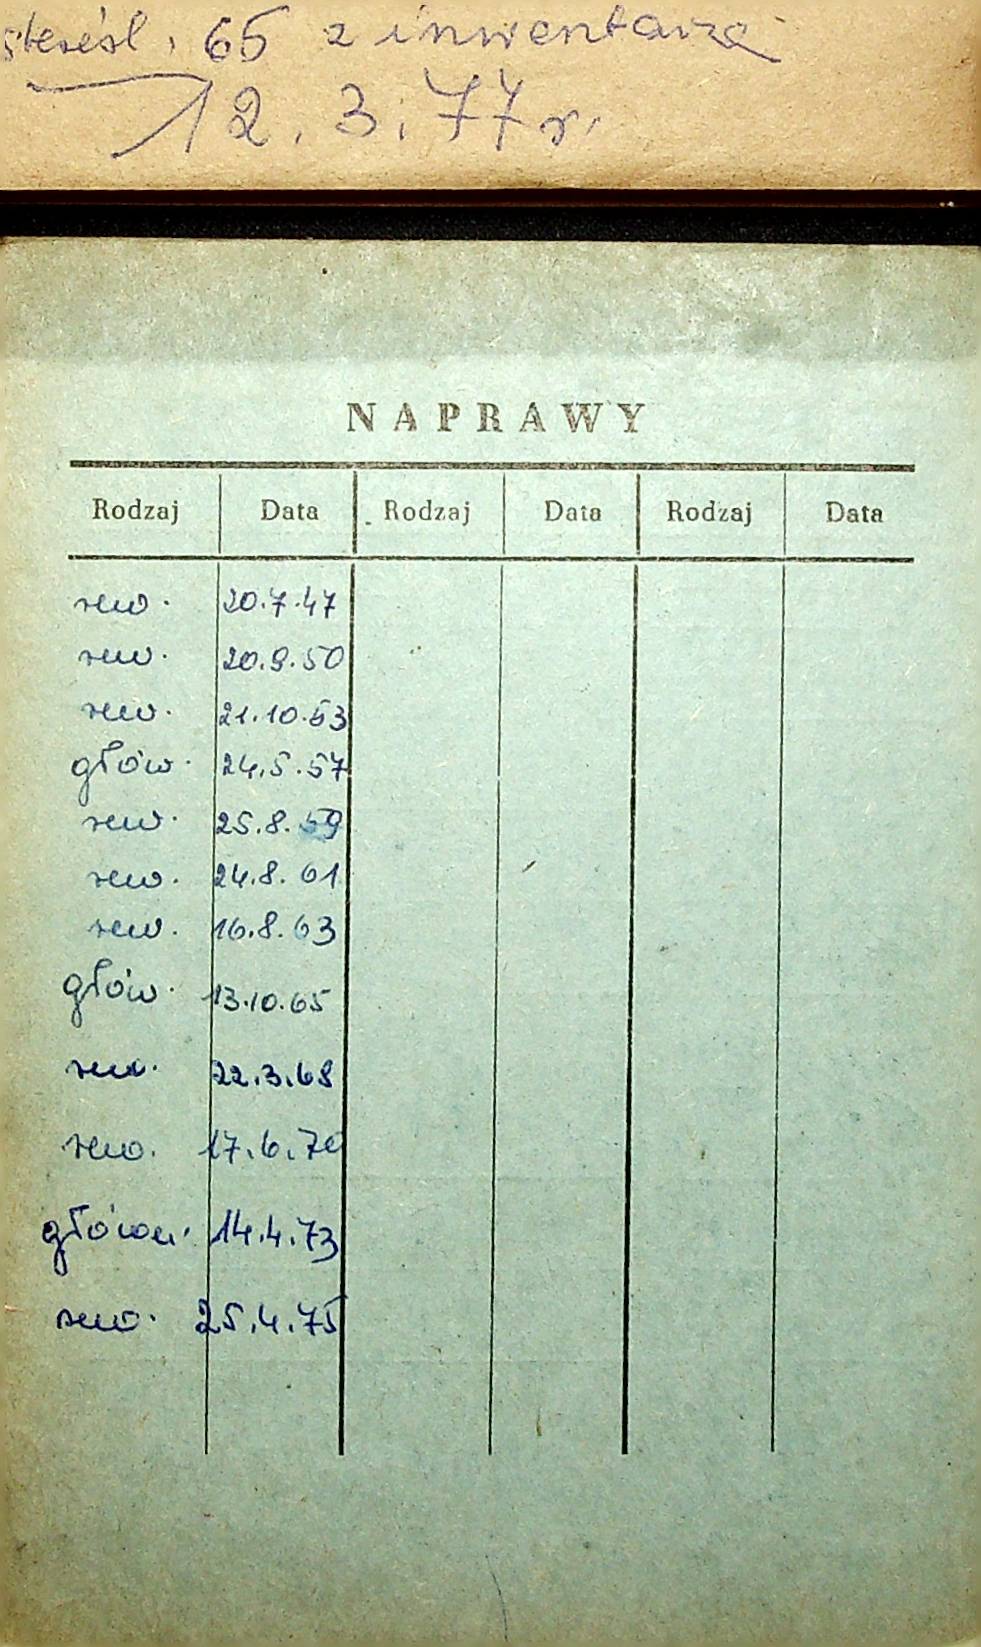 skreśl. 65 z inwentarza
12.3.77r.
NAPRAWY
Rodzaj Data Rodzaj Data Rodzaj Data
rew. 20.7.47
rew. 20.9.50
rew. 21.10.53
głów. 24.5.57
rew. 25.8.59
rew. 24.8.61
rew. 16.8.63
głów. 13.10.65
rew. 22.3.68
rew. 17.6.70
główn. 14.4.73
rew. 25.4.75